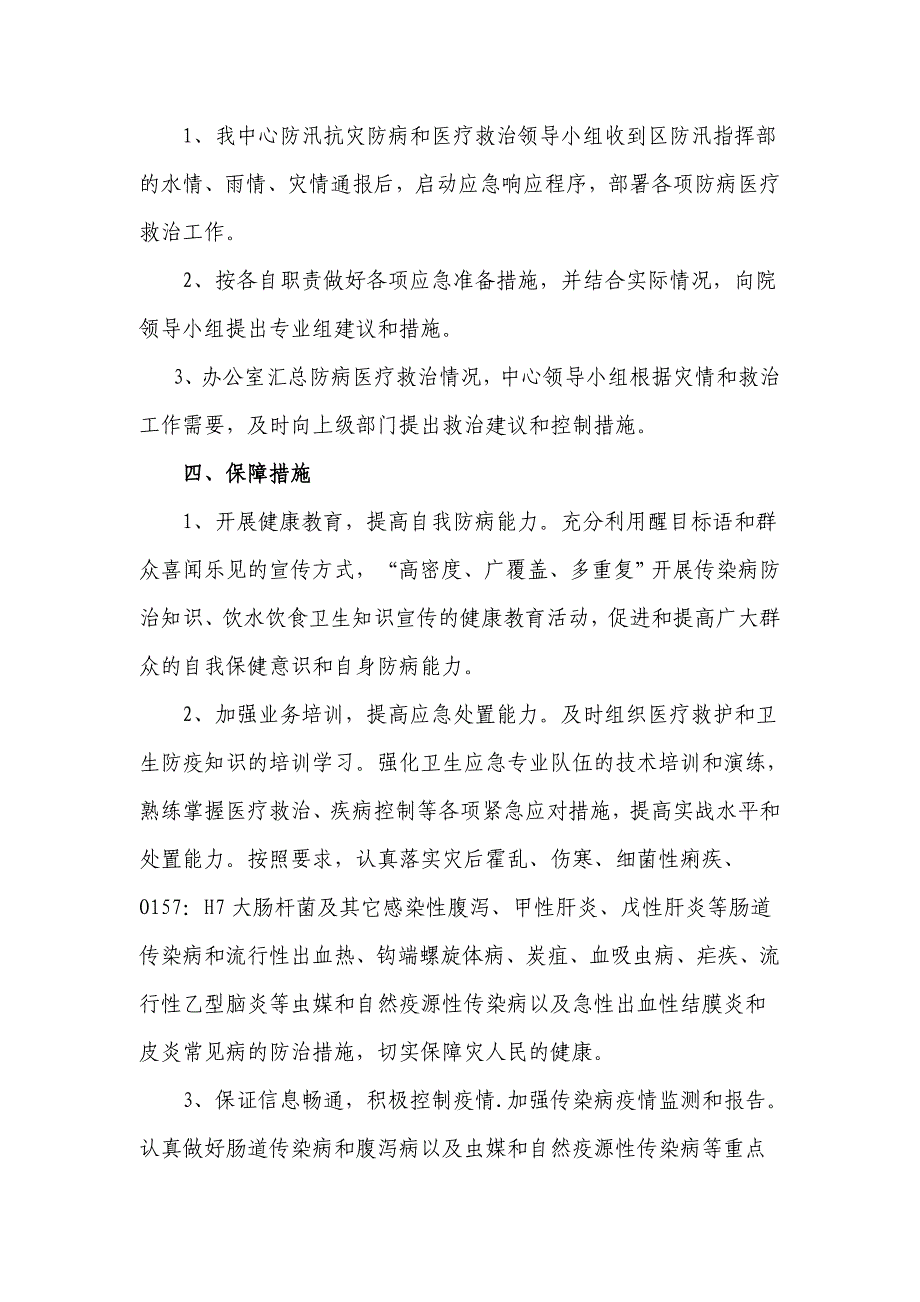 1、我中心防汛抗灾防病和医疗救治领导小组收到区防汛指挥部
的水情、雨情、灾情通报后，启动应急响应程序，部署各项防病医疗
救治工作。
2、按各自职责做好各项应急准备措施，并结合实际情况，向院
领导小组提出专业组建议和措施。
3、办公室汇总防病医疗救治情况，中心领导小组根据灾情和救治
工作需要，及时向上级部门提出救治建议和控制措施。
四、保障措施
1、开展健康教育，提高自我防病能力。充分利用醒目标语和群
众喜闻乐见的宣传方式，“高密度、广覆盖、多重复”开展传染病防
治知识、饮水饮食卫生知识宣传的健康教育活动，促进和提高广大群
众的自我保健意识和自身防病能力。
2、加强业务培训，提高应急处置能力。及时组织医疗救护和卫
生防疫知识的培训学习。强化卫生应急专业队伍的技术培训和演练，
熟练掌握医疗救治、疾病控制等各项紧急应对措施，提高实战水平和
处置能力。按照要求，认真落实灾后霍乱、伤寒、细菌性痢疾、
O157：H7 大肠杆菌及其它感染性腹泻、甲性肝炎、戊性肝炎等肠道
传染病和流行性出血热、钩端螺旋体病、炭疽、血吸虫病、疟疾、流
行性乙型脑炎等虫媒和自然疫源性传染病以及急性出血性结膜炎和
皮炎常见病的防治措施，切实保障灾人民的健康。
3、保证信息畅通，积极控制疫情.加强传染病疫情监测和报告。
认真做好肠道传染病和腹泻病以及虫媒和自然疫源性传染病等重点